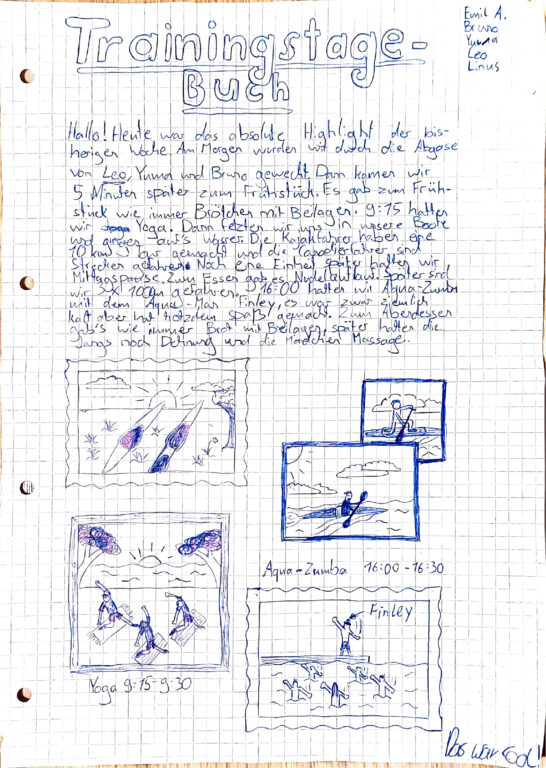 Trainingstage-
Buch
Emil A.
Bruno
Yuma
Leo
Linus
Hallo! Heute war das absolute Highlight der bis-
herigen Woche. Am Morgen wurden wir durch die Abgase
von Leo, Yuma und Bruno geweckt. Dann kamen wir
5 Minuten später zum Frühstück. Es gab zum Früh-
stück wie immer Brötchen mit Beilagen. 9:15 hatten
wir Yoga. Dann setzten wir uns in unsere Boote
und gingen auf's Wasser. Die Kajakfahrer haben eine
10 km gemacht und die Canadierfahrer sind
Strecken gefahren. Nach eine Einheit später hatten wir
Mittagspause. Zum Essen gab es Nudelauflauf. Später sind
wir 100m gefahren. 16:00 hatten wir Aqua-Zumba
mit dem Aqua-Man Finley, es war zwar ziemlich
kalt aber hat trotzdem Spaß gemacht. Zum Abendessen
gab's wie immer Brot mit Beilagen, später hatten die
Jungs noch Dehnung und die Mädchen Massage.
Aqua-Zumba 16:00-16:30
Finley
Yoga 9:15-9:30
Das war cool!